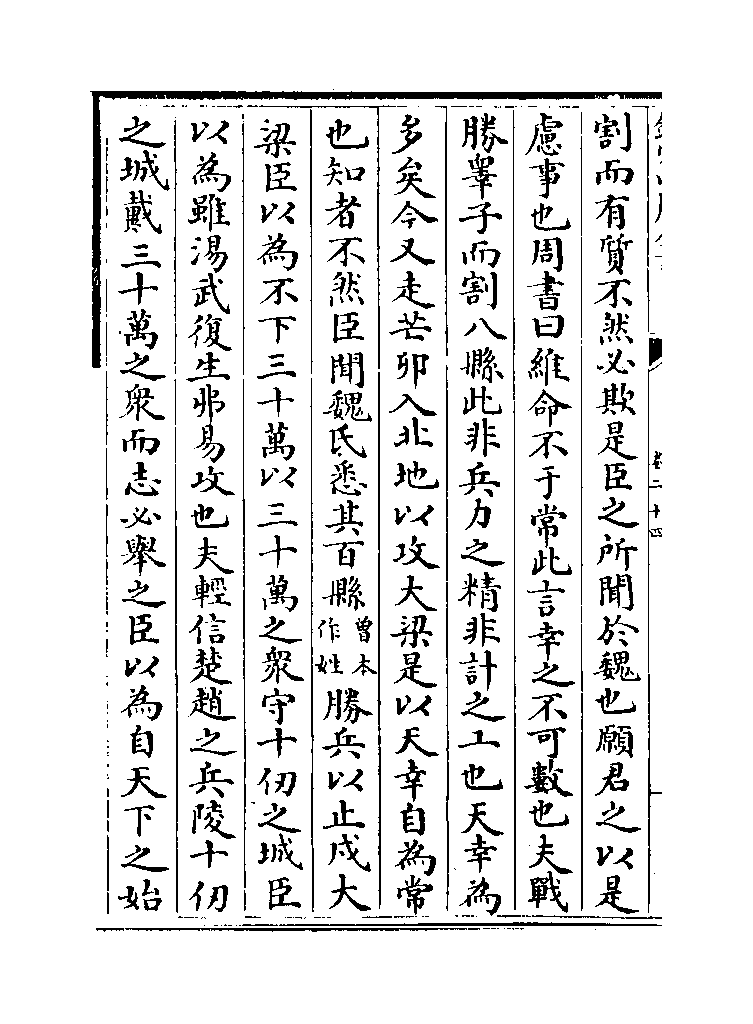 割而有質不然必欺是臣之所聞於魏也願君之以是
慮事也周書曰維命不于常此言幸之不可數也夫戰
勝睪子而割八縣此非兵力之精非計之工也天幸為
多矣今又走芒卯入北地以攻大梁是以天幸自為常
也知者不然臣聞魏氏悉其百縣曾本作姓勝兵以止戍大
梁臣以為不下三十萬以三十萬之衆守十仞之城臣
以為雖湯武復生弗易攻也夫輕信楚趙之兵陵十仞
之城戴三十萬之衆而志必舉之臣以為自天下之始
卷二十四